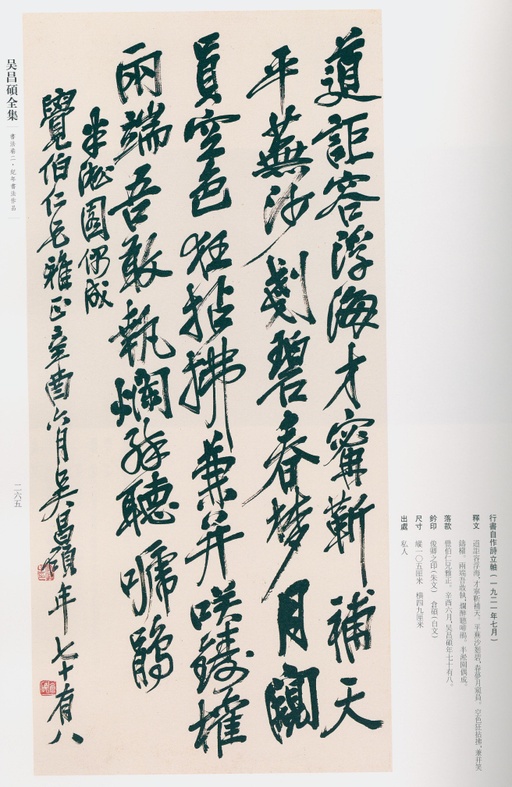 道詎容浮海才寧靳補天
平蕪沙剗碧春夢月窺
員空色狂拈拂兼并咲鑄權
兩端吾敢執爛醉聽嗁鵑
半淞園偶成
覺伯仁兄雅正辛酉六月吳昌碩年七十有八
行書自作詩立軸(一九二一年七月)
釋文 道詎容浮海,才寧靳補天。平蕪沙剗碧,春夢月窺員。空色狂拈拂,兼并笑
鑄權。兩端吾敢執,爛醉聽嗁鵑。半淞園偶成。
落款 覺伯仁兄雅正。辛酉六月,吳昌碩年七十有八。
鈐印 俊卿之印(朱文) 倉碩(白文)
尺寸 縱一〇五厘米 橫四九厘米
出處 私人
吴昌碩全集
書法卷二·紀年書法作品
二六五